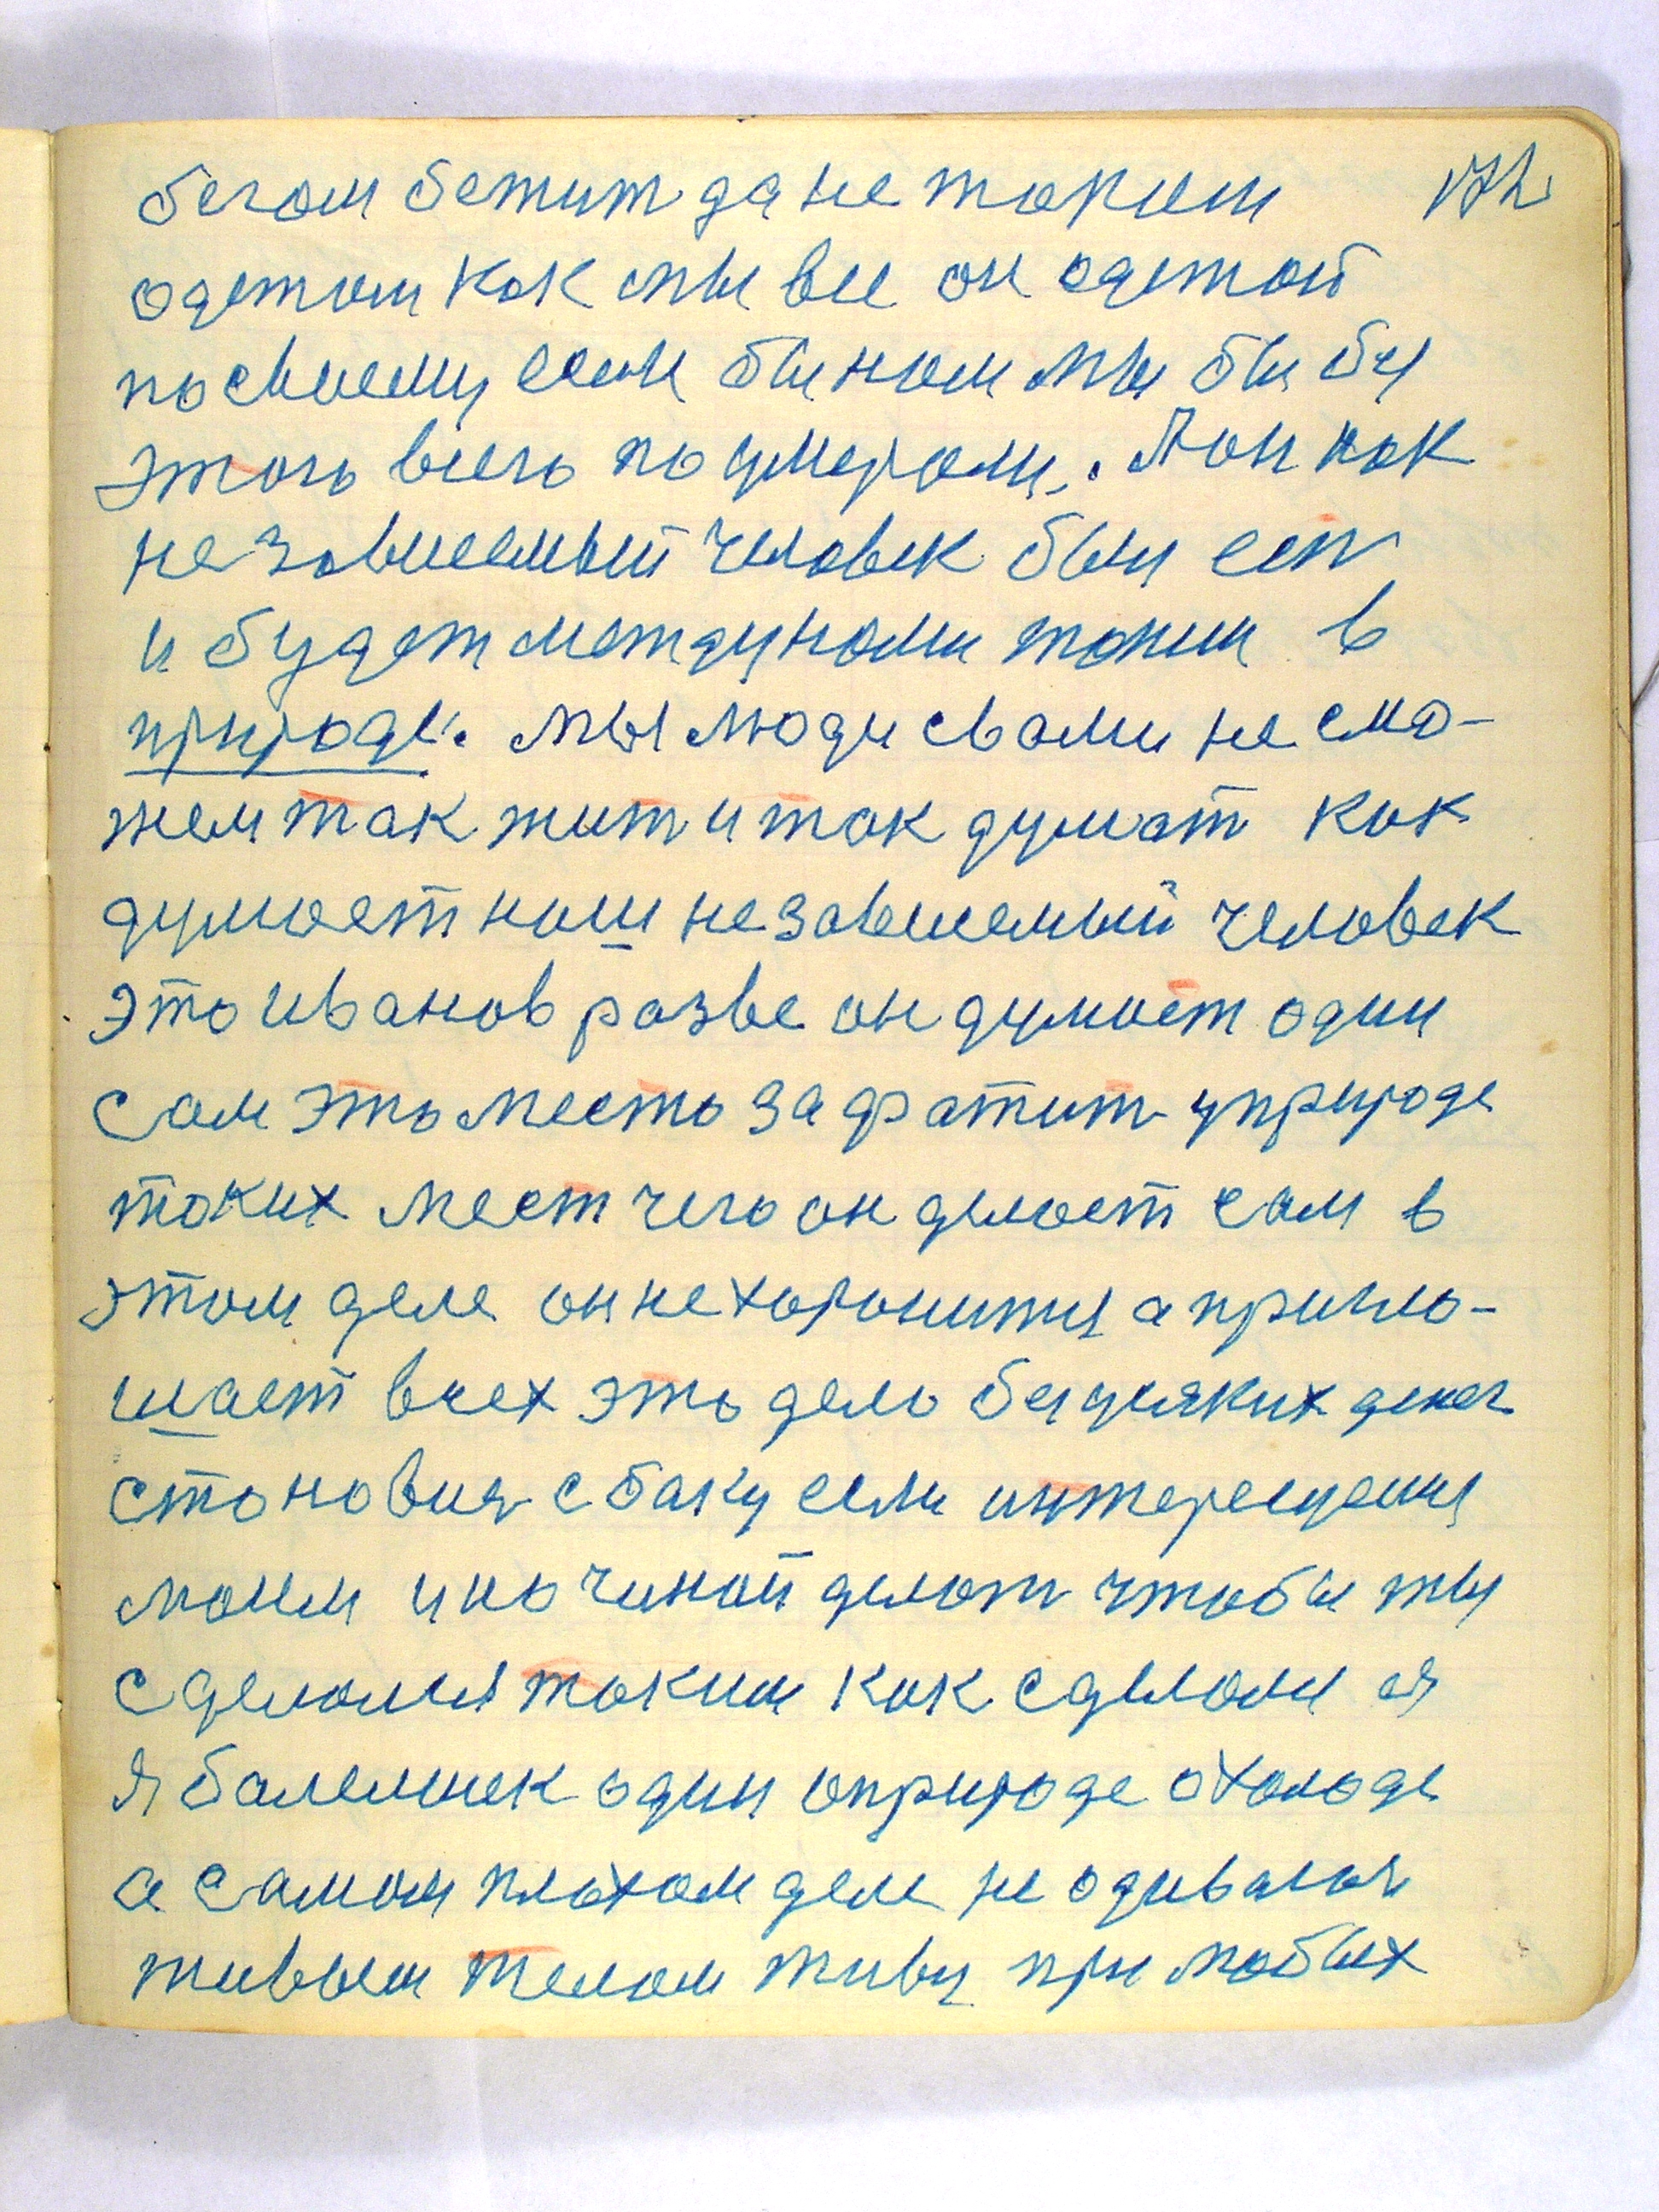 бегом бежит да не таким 172
одетом как мы все он одетой
по своему если бы нам мы бы бз
этого всего по умерали. А он как
не зависемый человек был есть
и будет между нами таким в
природе. мы люди с вами не смо-
жем так жит и так думат как
думает наш не зависемый человек
это иванов разве он думает один
сам это место зафатит у природе
таких мест чего он делает сам в
этом деле он не хоронится а пригло-
шает всех это дело без усяких денег
становися с баку если интересуешся
моим и начинай делат чтобы ты
сделался таким как сделался я
Я балельшек один о природе о холоде
а самом плохом деле не одиваюся
живым телом живу при любых